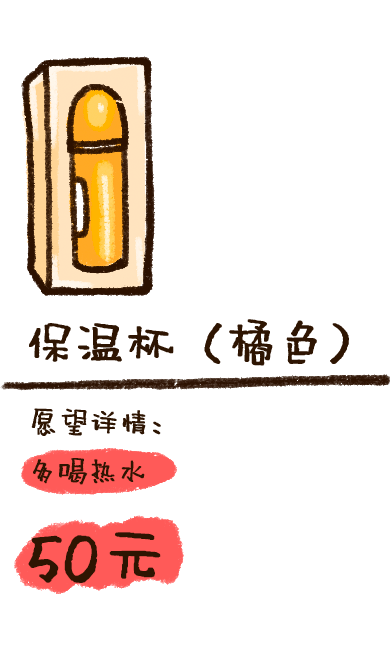 保温杯（橘色）
愿望详情：
多喝热水
50元